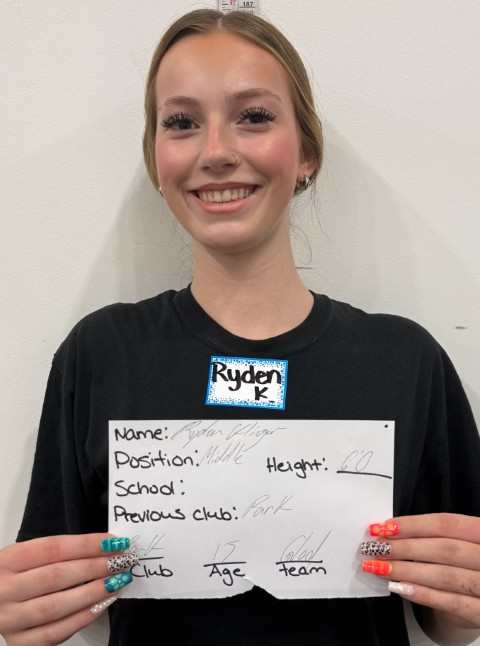 187
Ryden
K
Name: Ryden Klinger
Position: Middle Height: 6'0
School:
Previous club: Park
15
Club Age Team